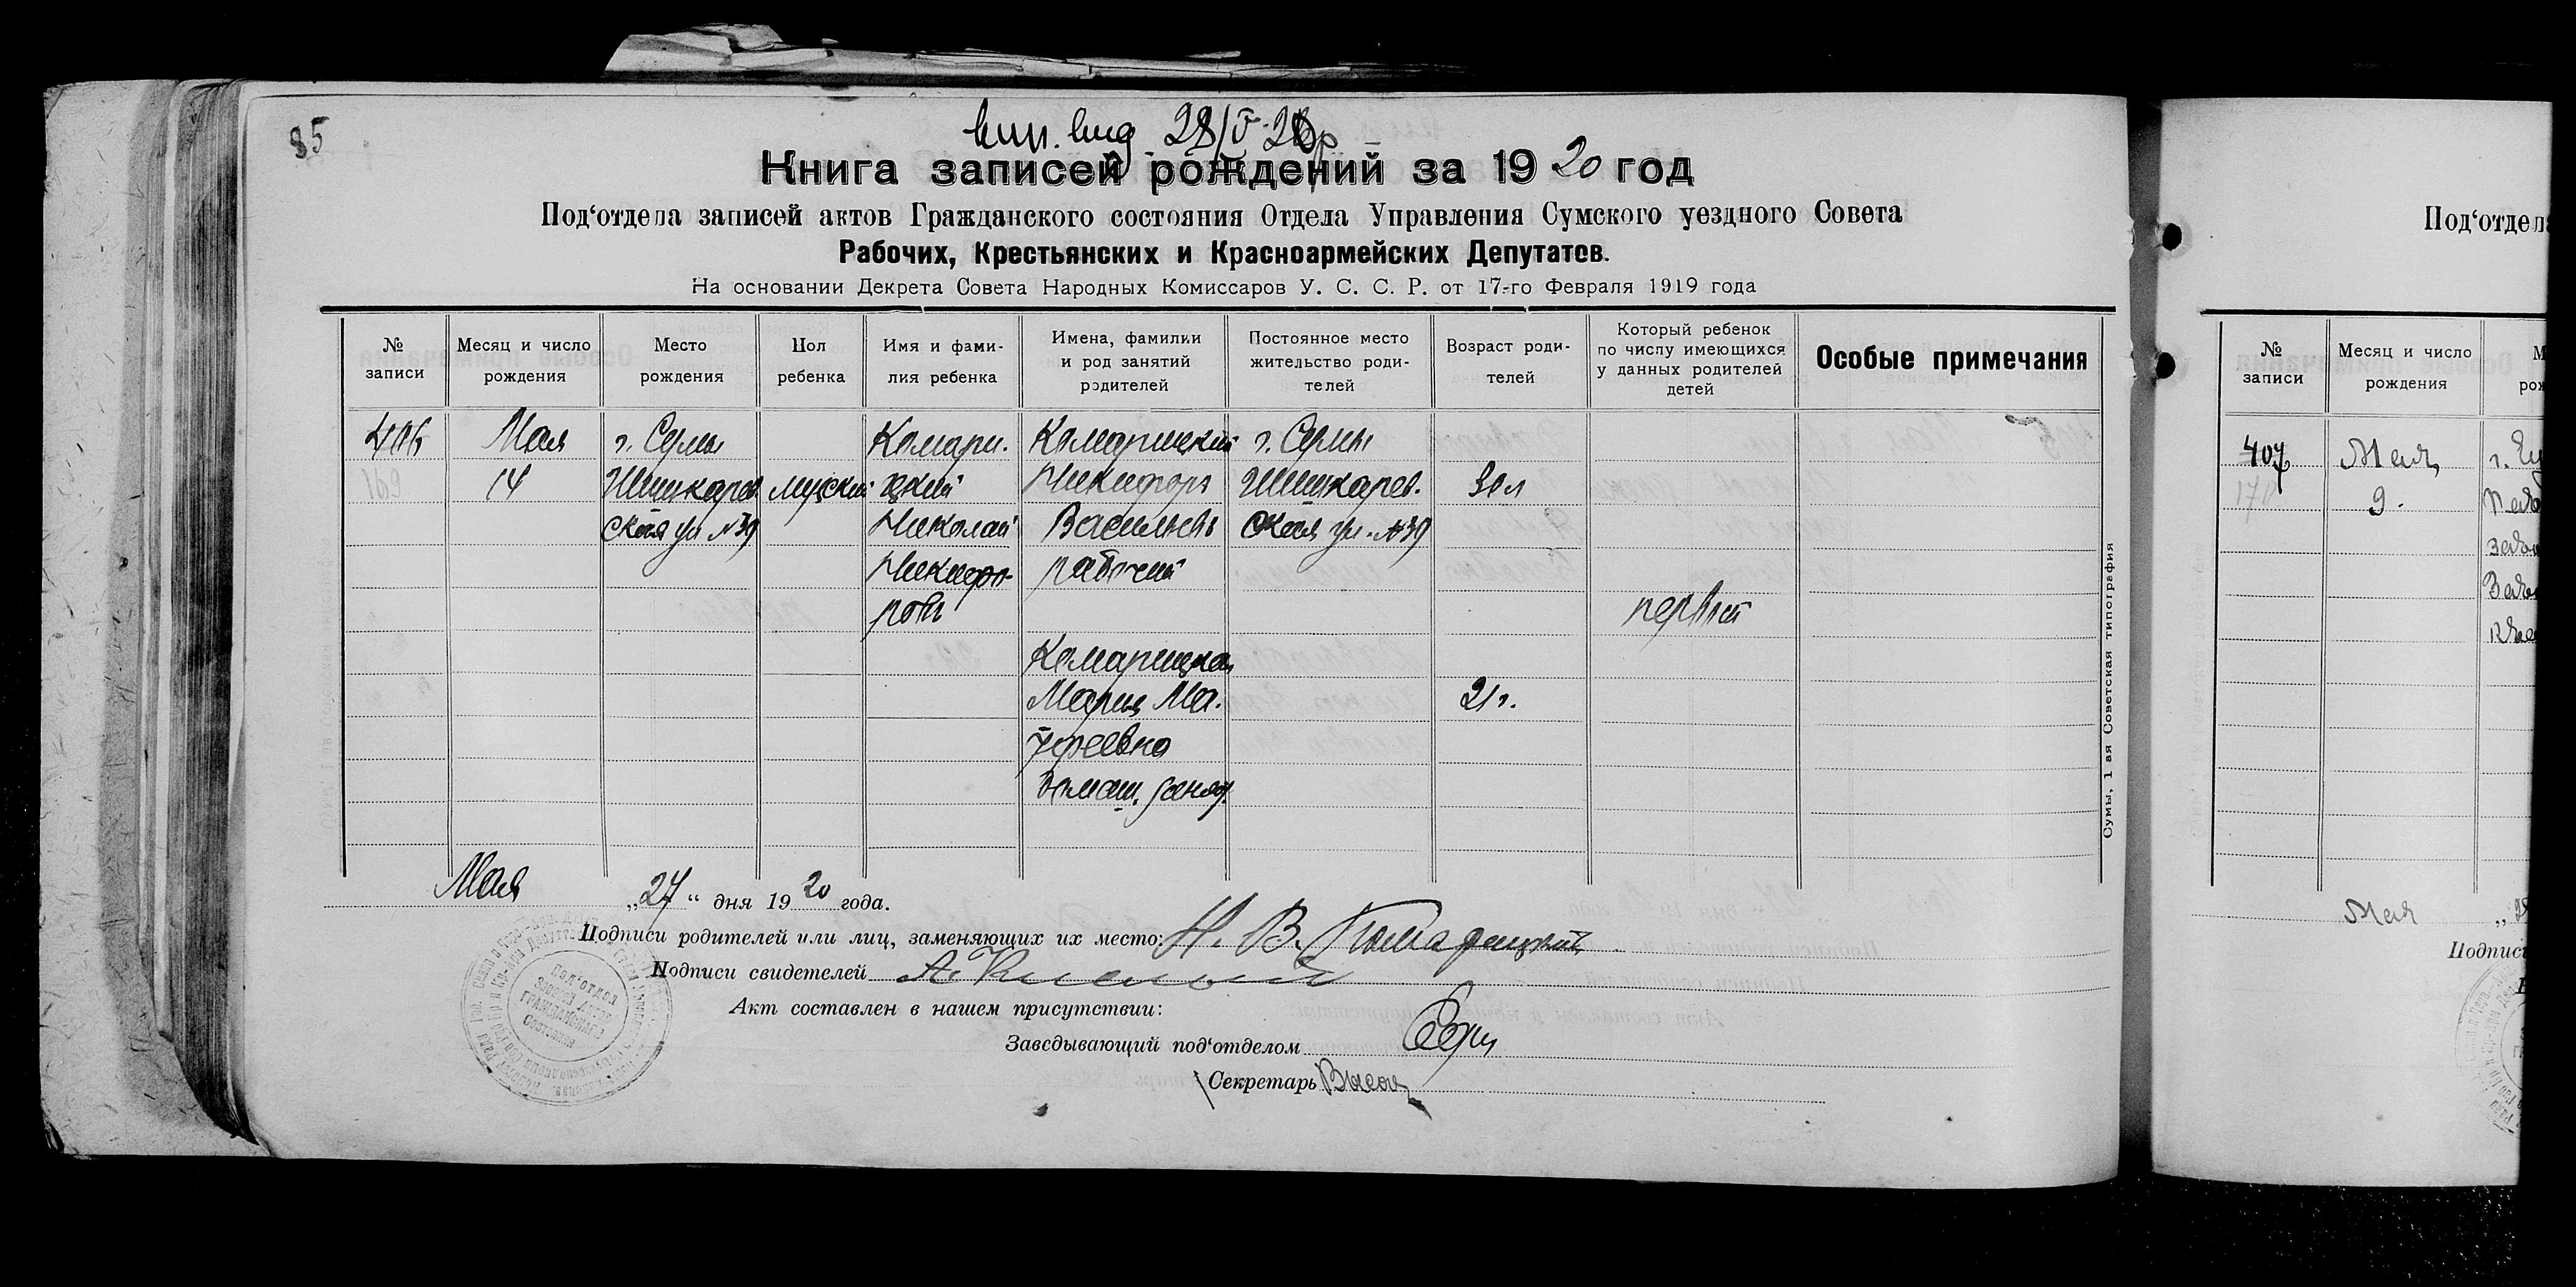 85
вып. вид 28/V-20 р
Книга записей рождений за 1920 год
Под‘отдела записей актов Гражданского состояния Отдела Управления Сумского уездного Совета
Рабочих, Крестьянских и Красноармейских Депутатов.
На основании Декрета Совета Народных Комиссаров У. С. С. Р. от 17-го Февраля 1919 года
№ записи
Месяц и число рождения
Место рождения
Пол ребенка
Имя и фами-
лия ребенка
Имена, фамилии
и род занятий
родителей
Постоянное место
жительство роди-
телей
Возраст роди-
телей
Который ребенок
по числу имеющихся
у данных родителей
детей
Особые примечания
406
169
Мая
14
г. Сумы
Шишкарев
ская ул №39
мужский
Комари.
цкий
Николай
Никифо-
ровъ
Комарицкий
Никифоръ
Васильевъ
рабочий
Комарицкая
Мария Ма.
тфеевна
домаш. занят.
г. Сумы
Шишкарев.
ская ул. №39
30 л
21 г.
первый
Сумы, 1 ая Советская типография
Мая „27“ дня 1920 года.
Подписи родителей или лиц, заменяющих их место: Н. В. Комарицкий
Подписи свидетелей
Акт составлен в нашем присутствии:
Заведывающий под‘отделом
Секретарь
Под‘отдел
Записей Актов
ГРАЖДАНСКАГО
Состояния
Под‘отдела
№ записи
Месяц и число рождения
407
170
Мая
9.
Мая
Подписи